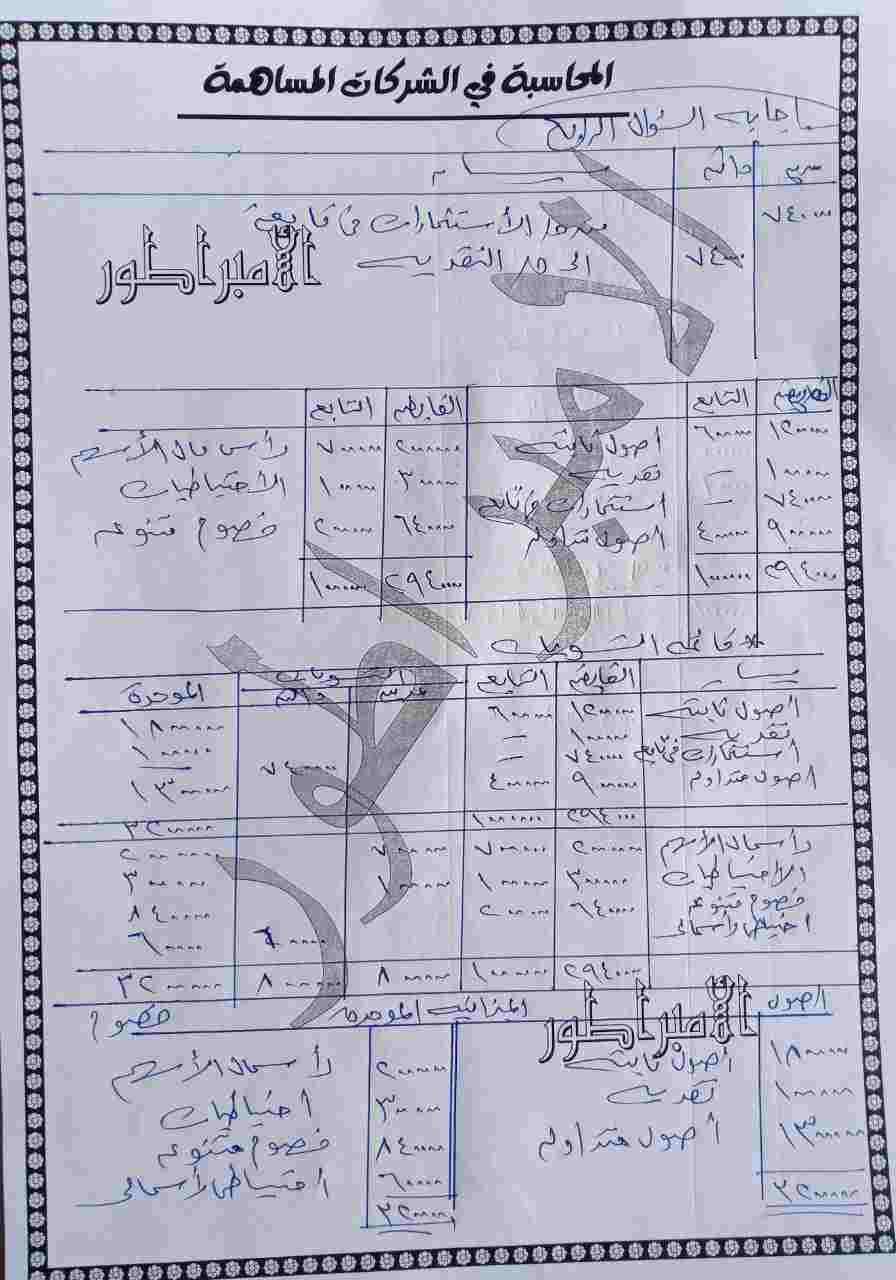 المحاسبة في الشركات المساهمة
إجابة السؤال الرابع
مدين دائن بيـــــان
٧٤٠٠٠٠ من حـ/ الأستثمارات في تابعة
٧٤٠٠٠٠ الى حـ/ النقدية
الأمبراطور
القابضة التابع القابضة التابع
١٢٠٠٠٠٠ ٦٠٠٠٠٠ اصول ثابتة ٢٠٠٠٠٠٠ ٧٠٠٠٠٠ رأس مال الأسهم
١٠٠٠٠٠ – نقدية ٣٠٠٠٠٠ ١٠٠٠٠٠ الأحتياطيات
٧٤٠٠٠٠ – استثمارات في تابعة ٦٤٠٠٠٠ ٢٠٠٠٠٠ خصوم متنوعه
٩٠٠٠٠٠ ٤٠٠٠٠٠ اصول متداوله
٢٩٤٠٠٠٠ ١٠٠٠٠٠٠ ٢٩٤٠٠٠٠ ١٠٠٠٠٠٠
* قائمه التسويات
بيـــان القابضة التابع التسويات الموحدة
مدين دائن
اصول ثابتة ١٢٠٠٠٠٠ ٦٠٠٠٠٠ ١٨٠٠٠٠٠
نقدية ١٠٠٠٠٠ – ١٠٠٠٠٠
استثمارات في تابعه ٧٤٠٠٠٠ – ٧٤٠٠٠٠ –
اصول متداوله ٩٠٠٠٠٠ ٤٠٠٠٠٠ ١٣٠٠٠٠٠
٢٩٤٠٠٠٠ ١٠٠٠٠٠٠ ٣٢٠٠٠٠٠
رأسمال الأسهم ٢٠٠٠٠٠٠ ٧٠٠٠٠٠ ٧٠٠٠٠٠ ٢٠٠٠٠٠٠
الاحتياطيات ٣٠٠٠٠٠ ١٠٠٠٠٠ ١٠٠٠٠٠ ٣٠٠٠٠٠
خصوم متنوعه ٦٤٠٠٠٠ ٢٠٠٠٠٠ ٨٤٠٠٠٠
احتياطى رأسمالى ٦٠٠٠٠ ٦٠٠٠٠
٢٩٤٠٠٠٠ ١٠٠٠٠٠٠ ٨٠٠٠٠٠ ٨٠٠٠٠٠ ٣٢٠٠٠٠٠
اصول الميزانية الموحدة خصوم
الأمبراطور
١٨٠٠٠٠٠ اصول ثابتة ٢٠٠٠٠٠٠ رأسمال الأسهم
١٠٠٠٠٠ نقدية ٣٠٠٠٠٠ احتياطيات
١٣٠٠٠٠٠ اصول متداوله ٨٤٠٠٠٠ خصوم متنوعه
٦٠٠٠٠ احتياطى رأسمالى
٣٢٠٠٠٠٠ ٣٢٠٠٠٠٠
الأمبراطور